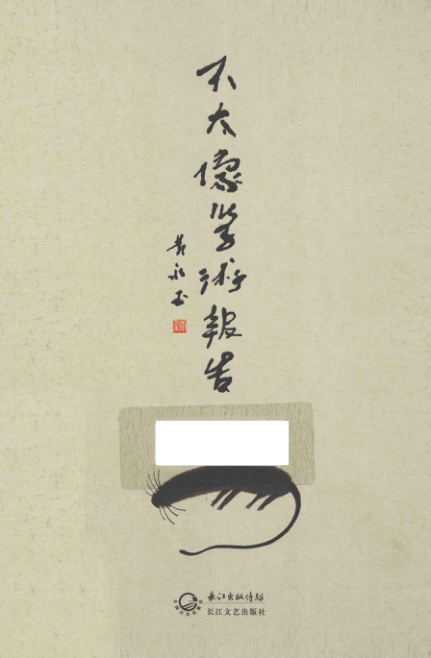 不太像学术報告
黄永玉
长江出版传媒
长江文艺出版社